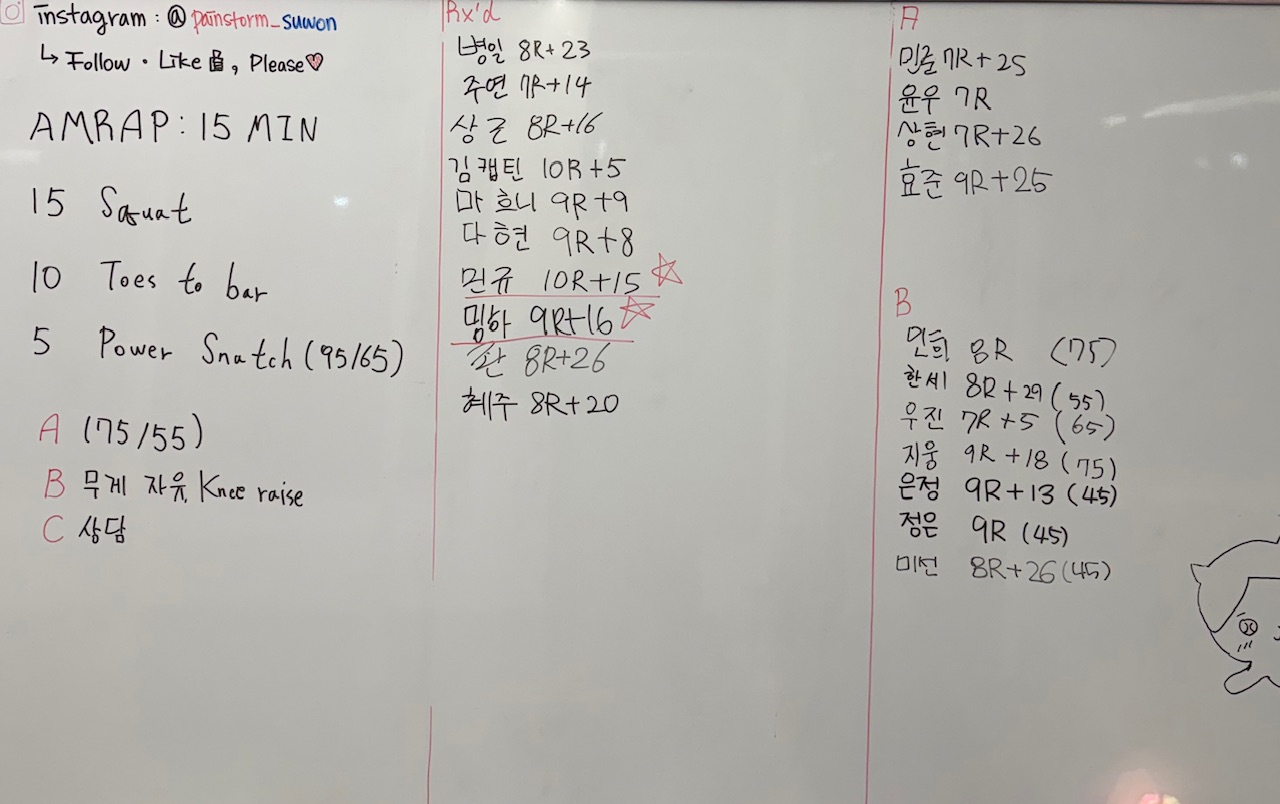 instagram : @painstorm_suwon
↳ Follow · Like, Please♡
AMRAP : 15 MIN
15 Squat
10 Toes to bar
5 Power Snatch (95/65)
A (75/55)
B 무게 자유, Knee raise
C 상담
Rx'd
병일 8R+23
주연 7R+14
상근 8R+16
김캡틴 10R+5
마흐니 9R+9
다현 9R+8
민규 10R+15 ☆
밈하 9R+16 ☆
8R+26
혜주 8R+20
A
민준 7R+25
윤우 7R
상현 7R+26
효준 9R+25
B
8R (75)
한세 8R+29 (55)
우진 7R+5 (65)
지웅 9R+18 (75)
은정 9R+13 (45)
정은 9R (45)
미선 8R+26 (45)